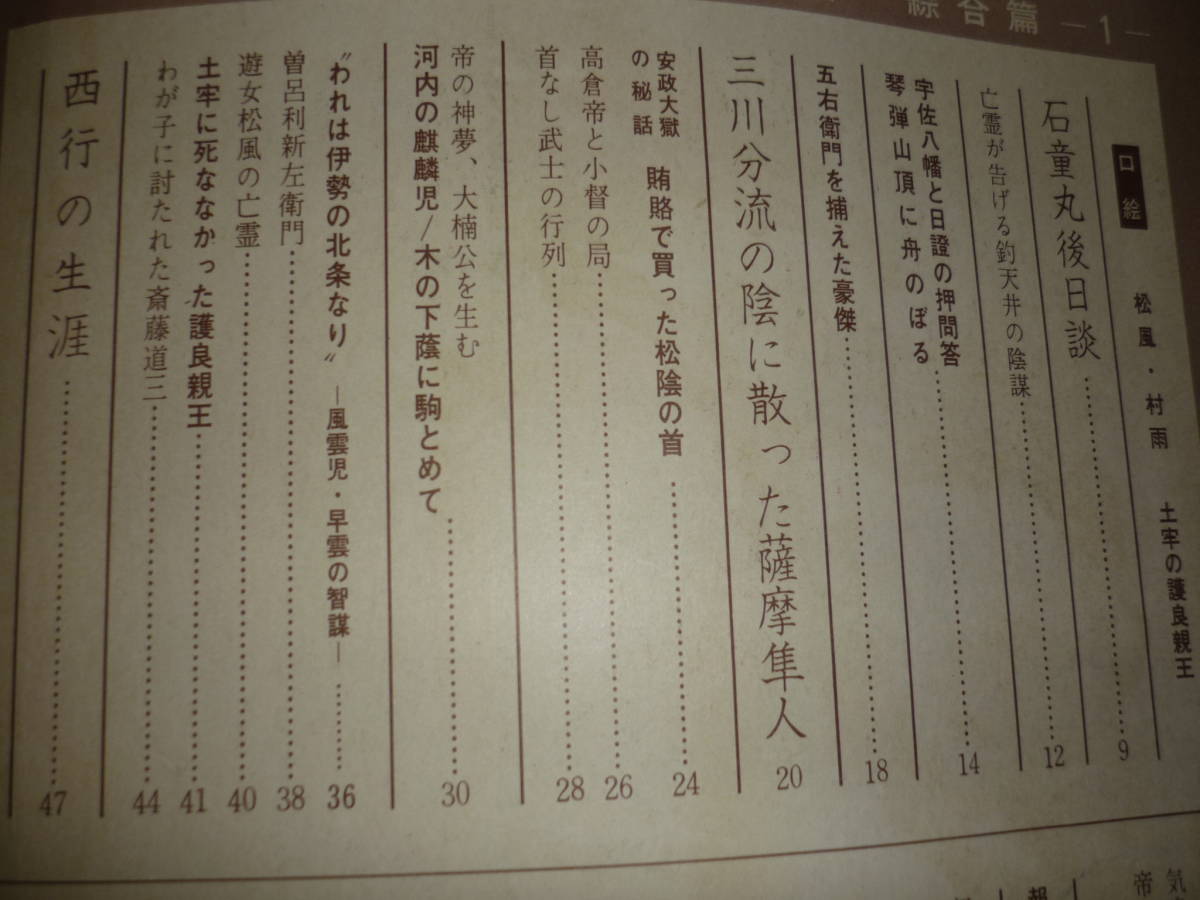 綜合篇 ―1―
口絵 松風・村雨 土牢の護良親王
石童丸後日談……9
亡霊が告げる釣天井の陰謀……12
宇佐八幡と日證の押問答
琴弾山頂に舟のぼる……14
五右衛門を捕えた豪傑……18
三川分流の陰に散った薩摩隼人 20
安政大獄の秘話 賄賂で買った松陰の首……24
高倉帝と小督の局……26
首なし武士の行列……28
帝の神夢、大楠公を生む
河内の麒麟児/木の下蔭に駒とめて……30
〝われは伊勢の北条なり〟―風雲児・早雲の智謀―……36
曽呂利新左衛門……38
遊女松風の亡霊……40
土牢に死ななかった護良親王……41
わが子に討たれた斎藤道三……44
西行の生涯……47
気
帝